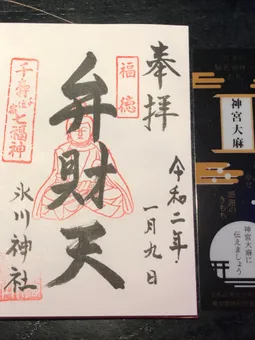 奉拝
福徳
弁財天
令和二年
一月九日
千寿
七福神
氷川神社
神宮大麻
感謝の
神宮大麻に
伝えましょう